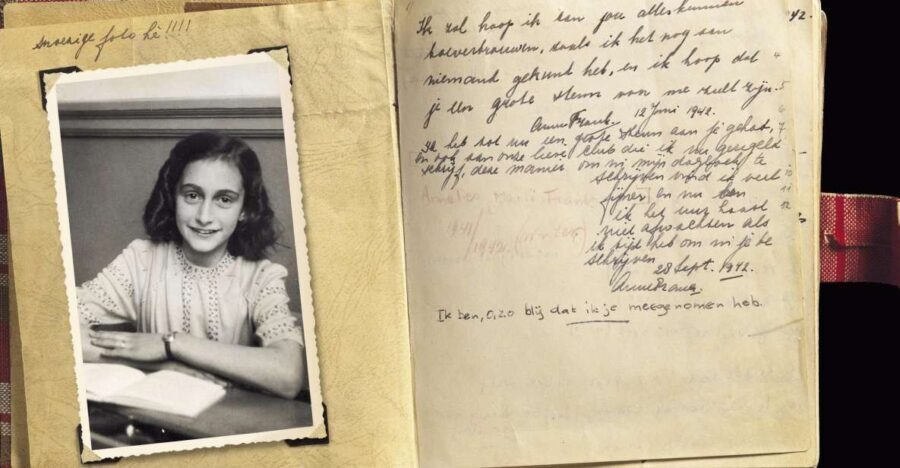 snoezige foto hè!!!!
42.
Ik zal hoop ik aan jou alles kunnen
toevertrouwen, zoals ik het nog aan
niemand gekund heb, en ik hoop dat
je een grote steun voor me zult zijn.
Anne Frank. 12 Juni 1942.
Ik heb tot nu een grote steun aan je gehad,
en ook aan onze lieve club die ik nu geregeld
schrijf, deze manier om in mijn dagboek te
schrijven vind ik veel
fijner en nu
ik het uur haast
niet afwachten als
ik tijd heb om in je te
schrijven
28 Sept. 1942.
Anne Frank.
Ik ben, O, zo blij dat ik je meegenomen heb.